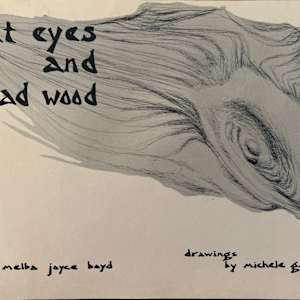 t eyes
and
ad wood
melba jayce bayd
drawings
by michele g